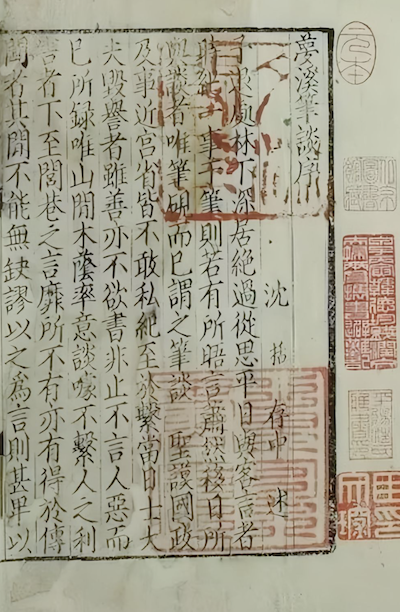 元本
夢溪筆談序
沈 括 存中 述
予退處林下深居絕過從思平日與客言者
時紀一事於筆則若有所晤言蕭然移日所
與談者唯筆硯而已謂之筆談 聖謨國政
及事近宮省皆不敢私紀至於繫當日士大
夫毀譽者雖善亦不欲書非止不言人惡而
已所録唯山間木蔭率意談噱不繫人之利
害者下至閭巷之言靡所不有亦有得於傳
聞者其間不能無缺謬以之為言則甚卑以